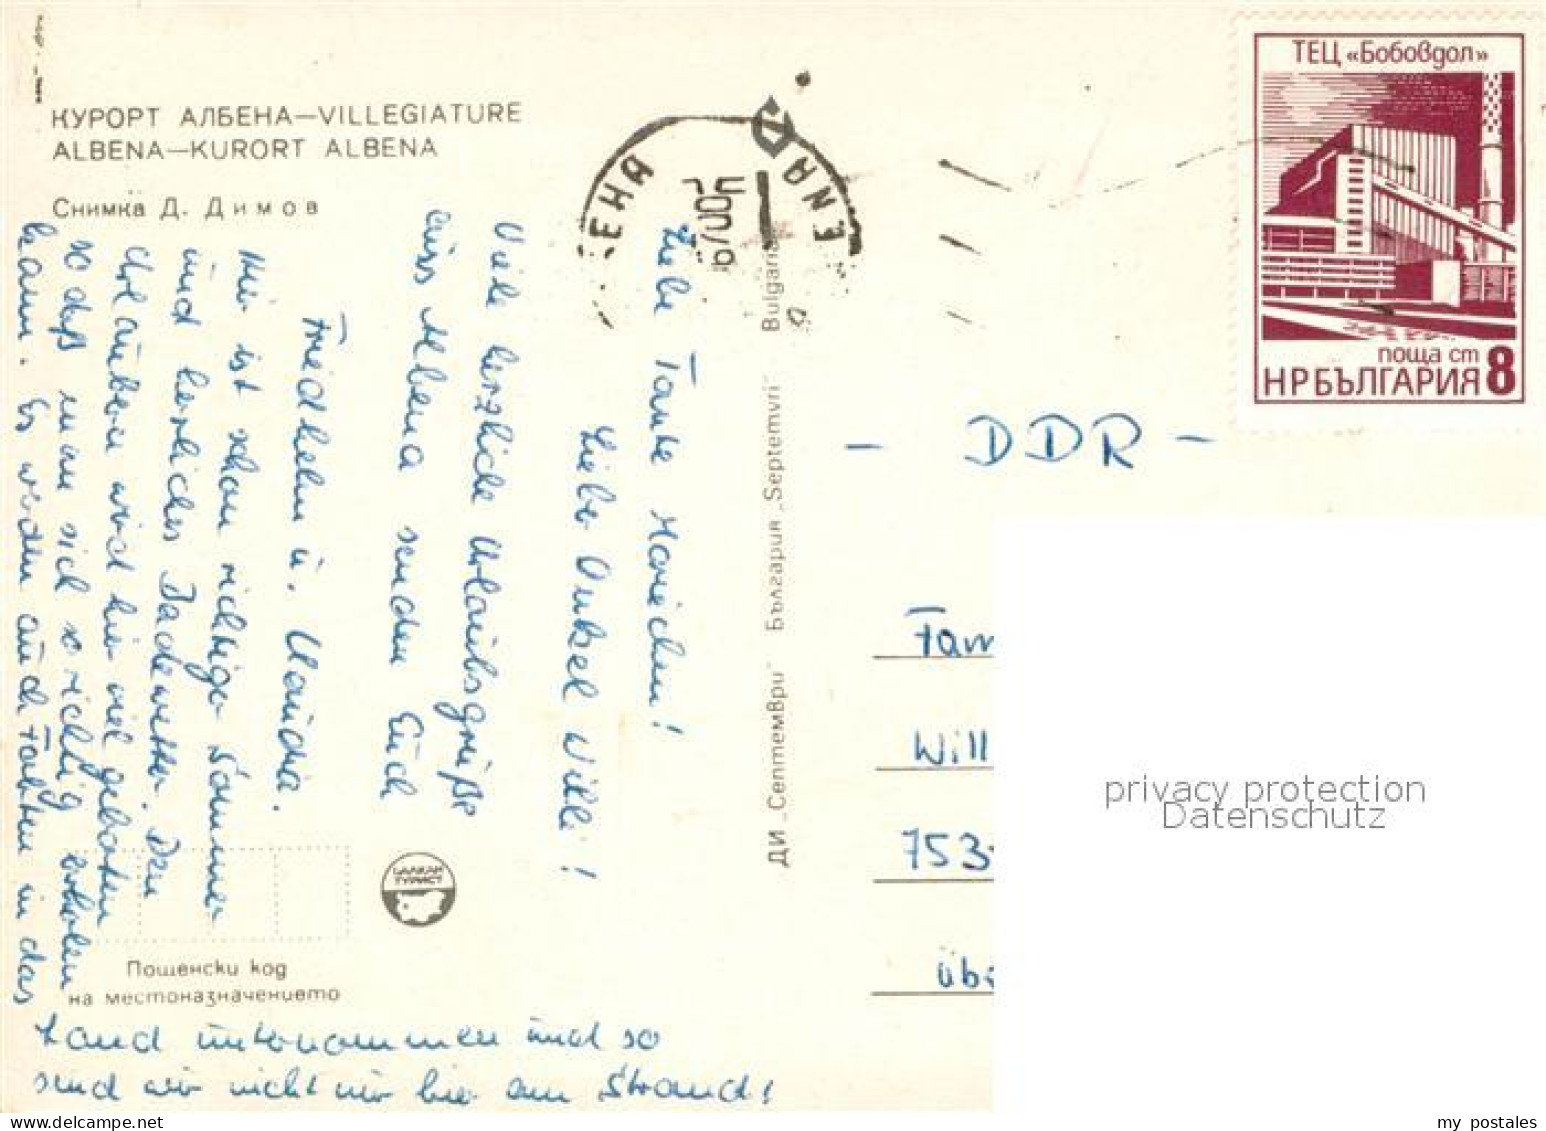 КУРОРТ АЛБЕНА—VILLEGIATURE
ALBENA—KURORT ALBENA
Снимка Д. Димов
Liebe Tante Mariechen!
Lieber Onkel Willi!
Viele herzliche Urlaubsgrüße
aus Albena senden Euch
Friedhelm u. Claudia.
Hier ist schon richtiger Sommer
und herrliches Badewetter. Den
Urlaubern wird hier viel geboten
so daß man sich so richtig erholen
kann. Es werden auch Fahrten in das
Land unternommen und so
sind wir nicht nur hier am Strand!
Пощенски код
на местоназначението
БАЛКАН
ТУРИСТ
ДИ „Септември" България „Septemvri" Bulgaria
ЕНА
ENA
ТЕЦ «Бобовдол»
поща ст 8
НР БЪЛГАРИЯ
- DDR -
Fam
Will
753
üb
privacy protection
Datenschutz
my postales